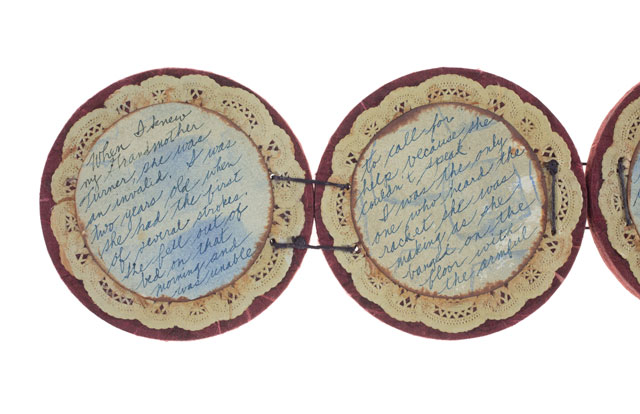 When I knew
my Grandmother
Turner, she was
an invalid. I was
two years old when
she had the first
of several strokes.
She fell out of
bed on that
morning and
was unable
to call for
help because she
couldn't speak.
I was the only
one who heard the
racket she was
making as she
banged on the
floor with
the armful